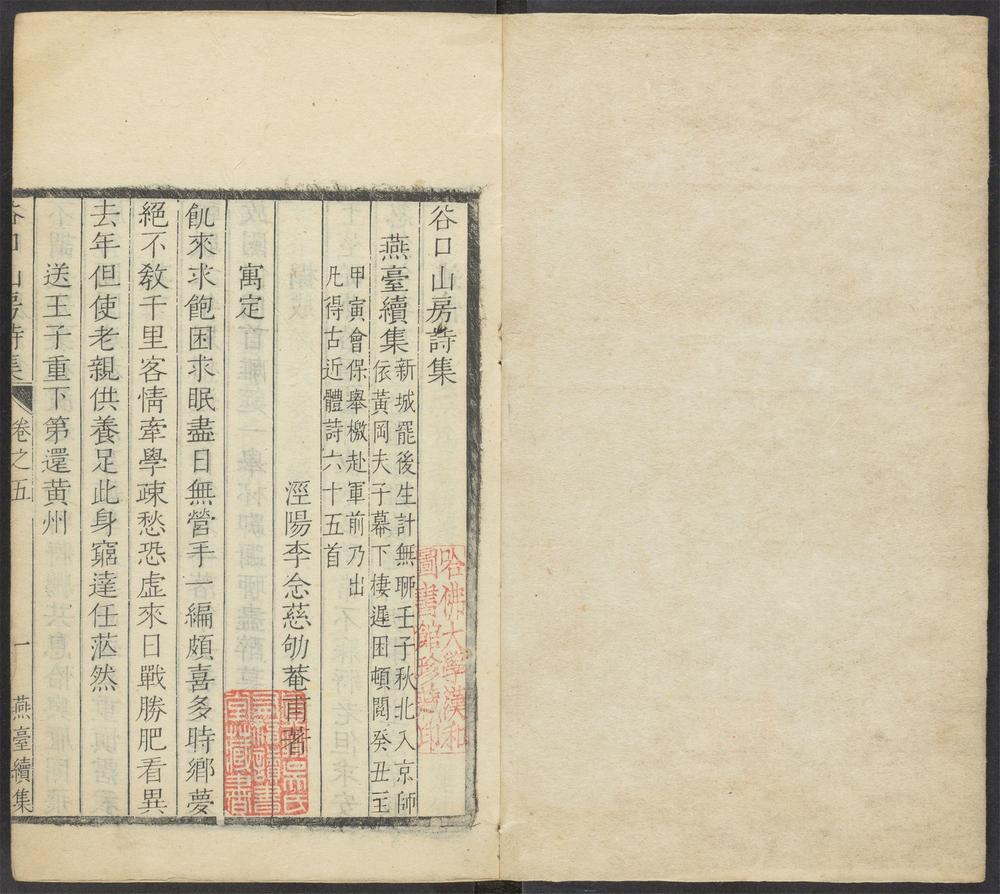 谷口山房詩集
燕臺續集
新城罷後生計無聊壬子秋北入京師
依黃岡夫子幕下棲遲困頓閱癸丑至
甲寅會保舉檄赴軍前乃出
凡得古近體詩六十五首
涇陽李念慈劬菴甫著
寓定
飢來求飽困求眠盡日無營手一編頗喜多時鄉夢
絕不教千里客情牽學疎愁恐虛來日戰勝肥看異
去年但使老親供養足此身窮達任茫然
送王子重下第還黃州
谷口山房詩集
卷之五
一
燕臺續集
哈佛大學漢和
圖書館珍藏印
藏書